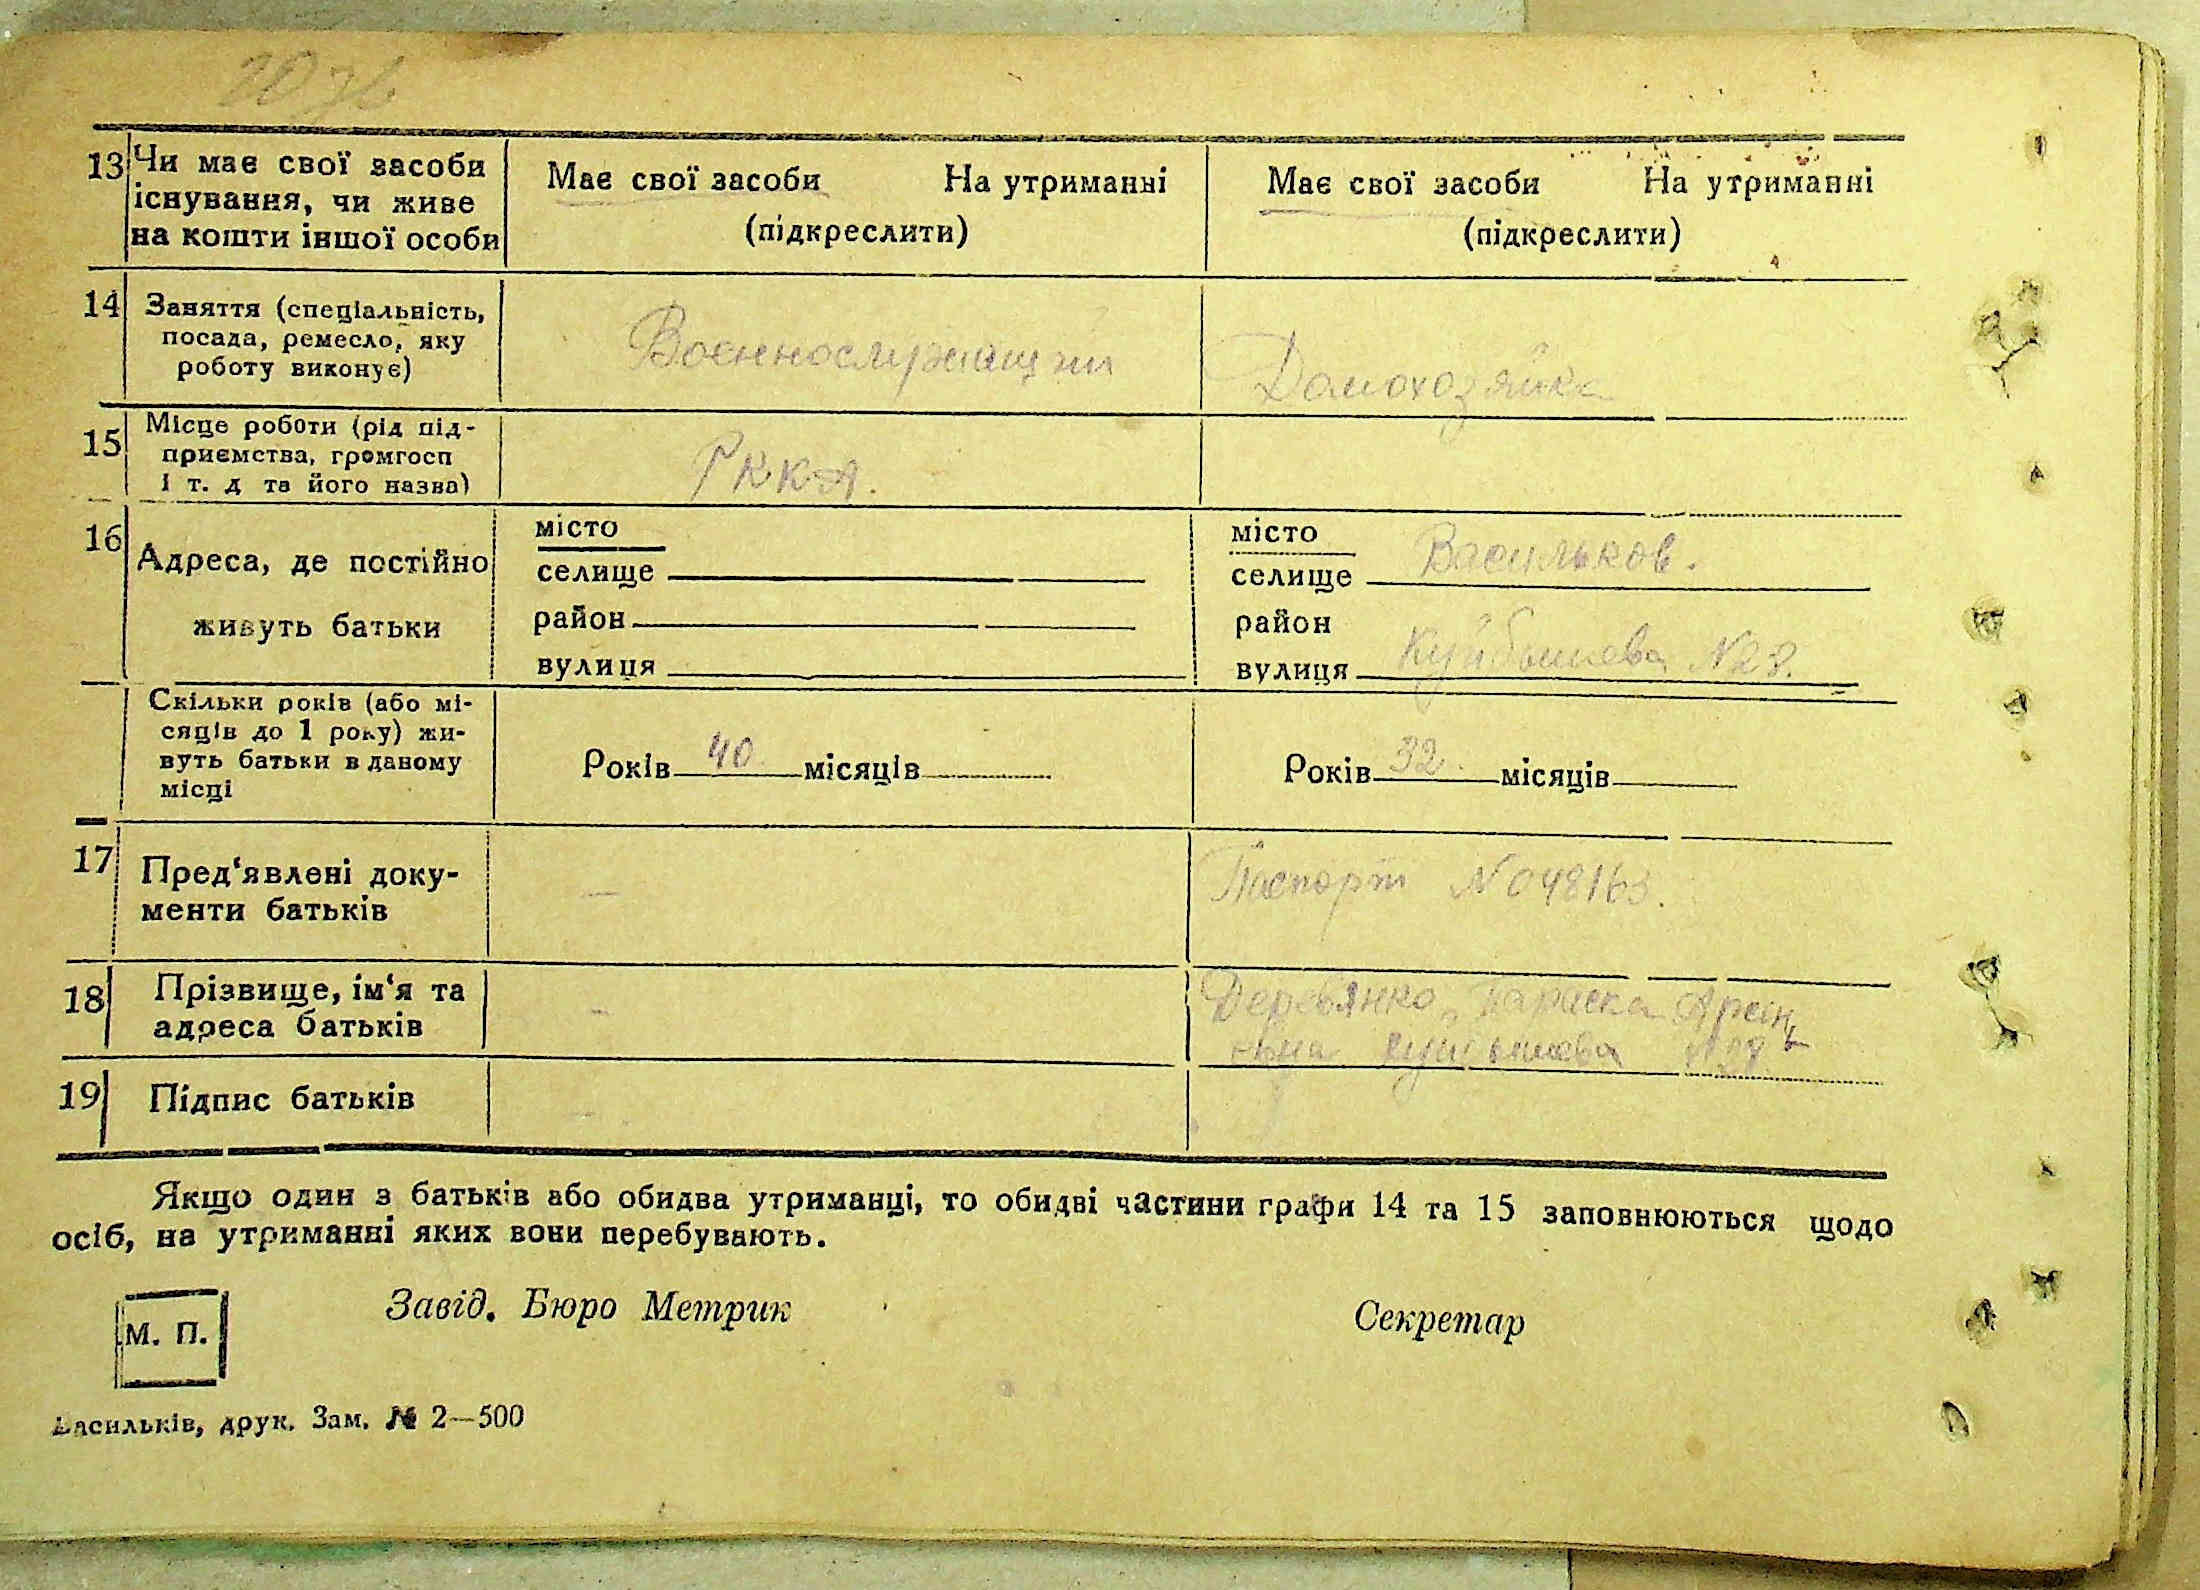 13 Чи має свої засоби існування, чи живе на кошти іншої особи
Має свої засоби На утриманні
(підкреслити)
Має свої засоби На утриманні
(підкреслити)
14 Заняття (спеціальність,
посада, ремесло, яку
роботу виконує)
Воєннослужащий
Домохозяйка
15 Місце роботи (рід під-
приємства, громгосп
і т. д та його назва)
РККА.
16 Адреса, де постійно
живуть батьки
місто
селище
район
вулиця
місто Васильков.
селище
район
вулиця Куйбышева N28.
Скільки років (або мі-
сяців до 1 року) жи-
вуть батьки в даному
місці
Років 40 місяців
Років 32. місяців
17 Пред'явлені доку-
менти батьків
—
Паспорт N 048163.
18 Прізвище, ім'я та
адреса батьків
—
Деревянко Параска Арсен
ньна Куйбышева N28
19 Підпис батьків
Якщо один з батьків або обидва утриманці, то обидві частини графи 14 та 15 заповнюються щодо
осіб, на утриманні яких вони перебувають.
М. П.
Завід. Бюро Метрик
Секретар
Васильків, друк. Зам. № 2—500